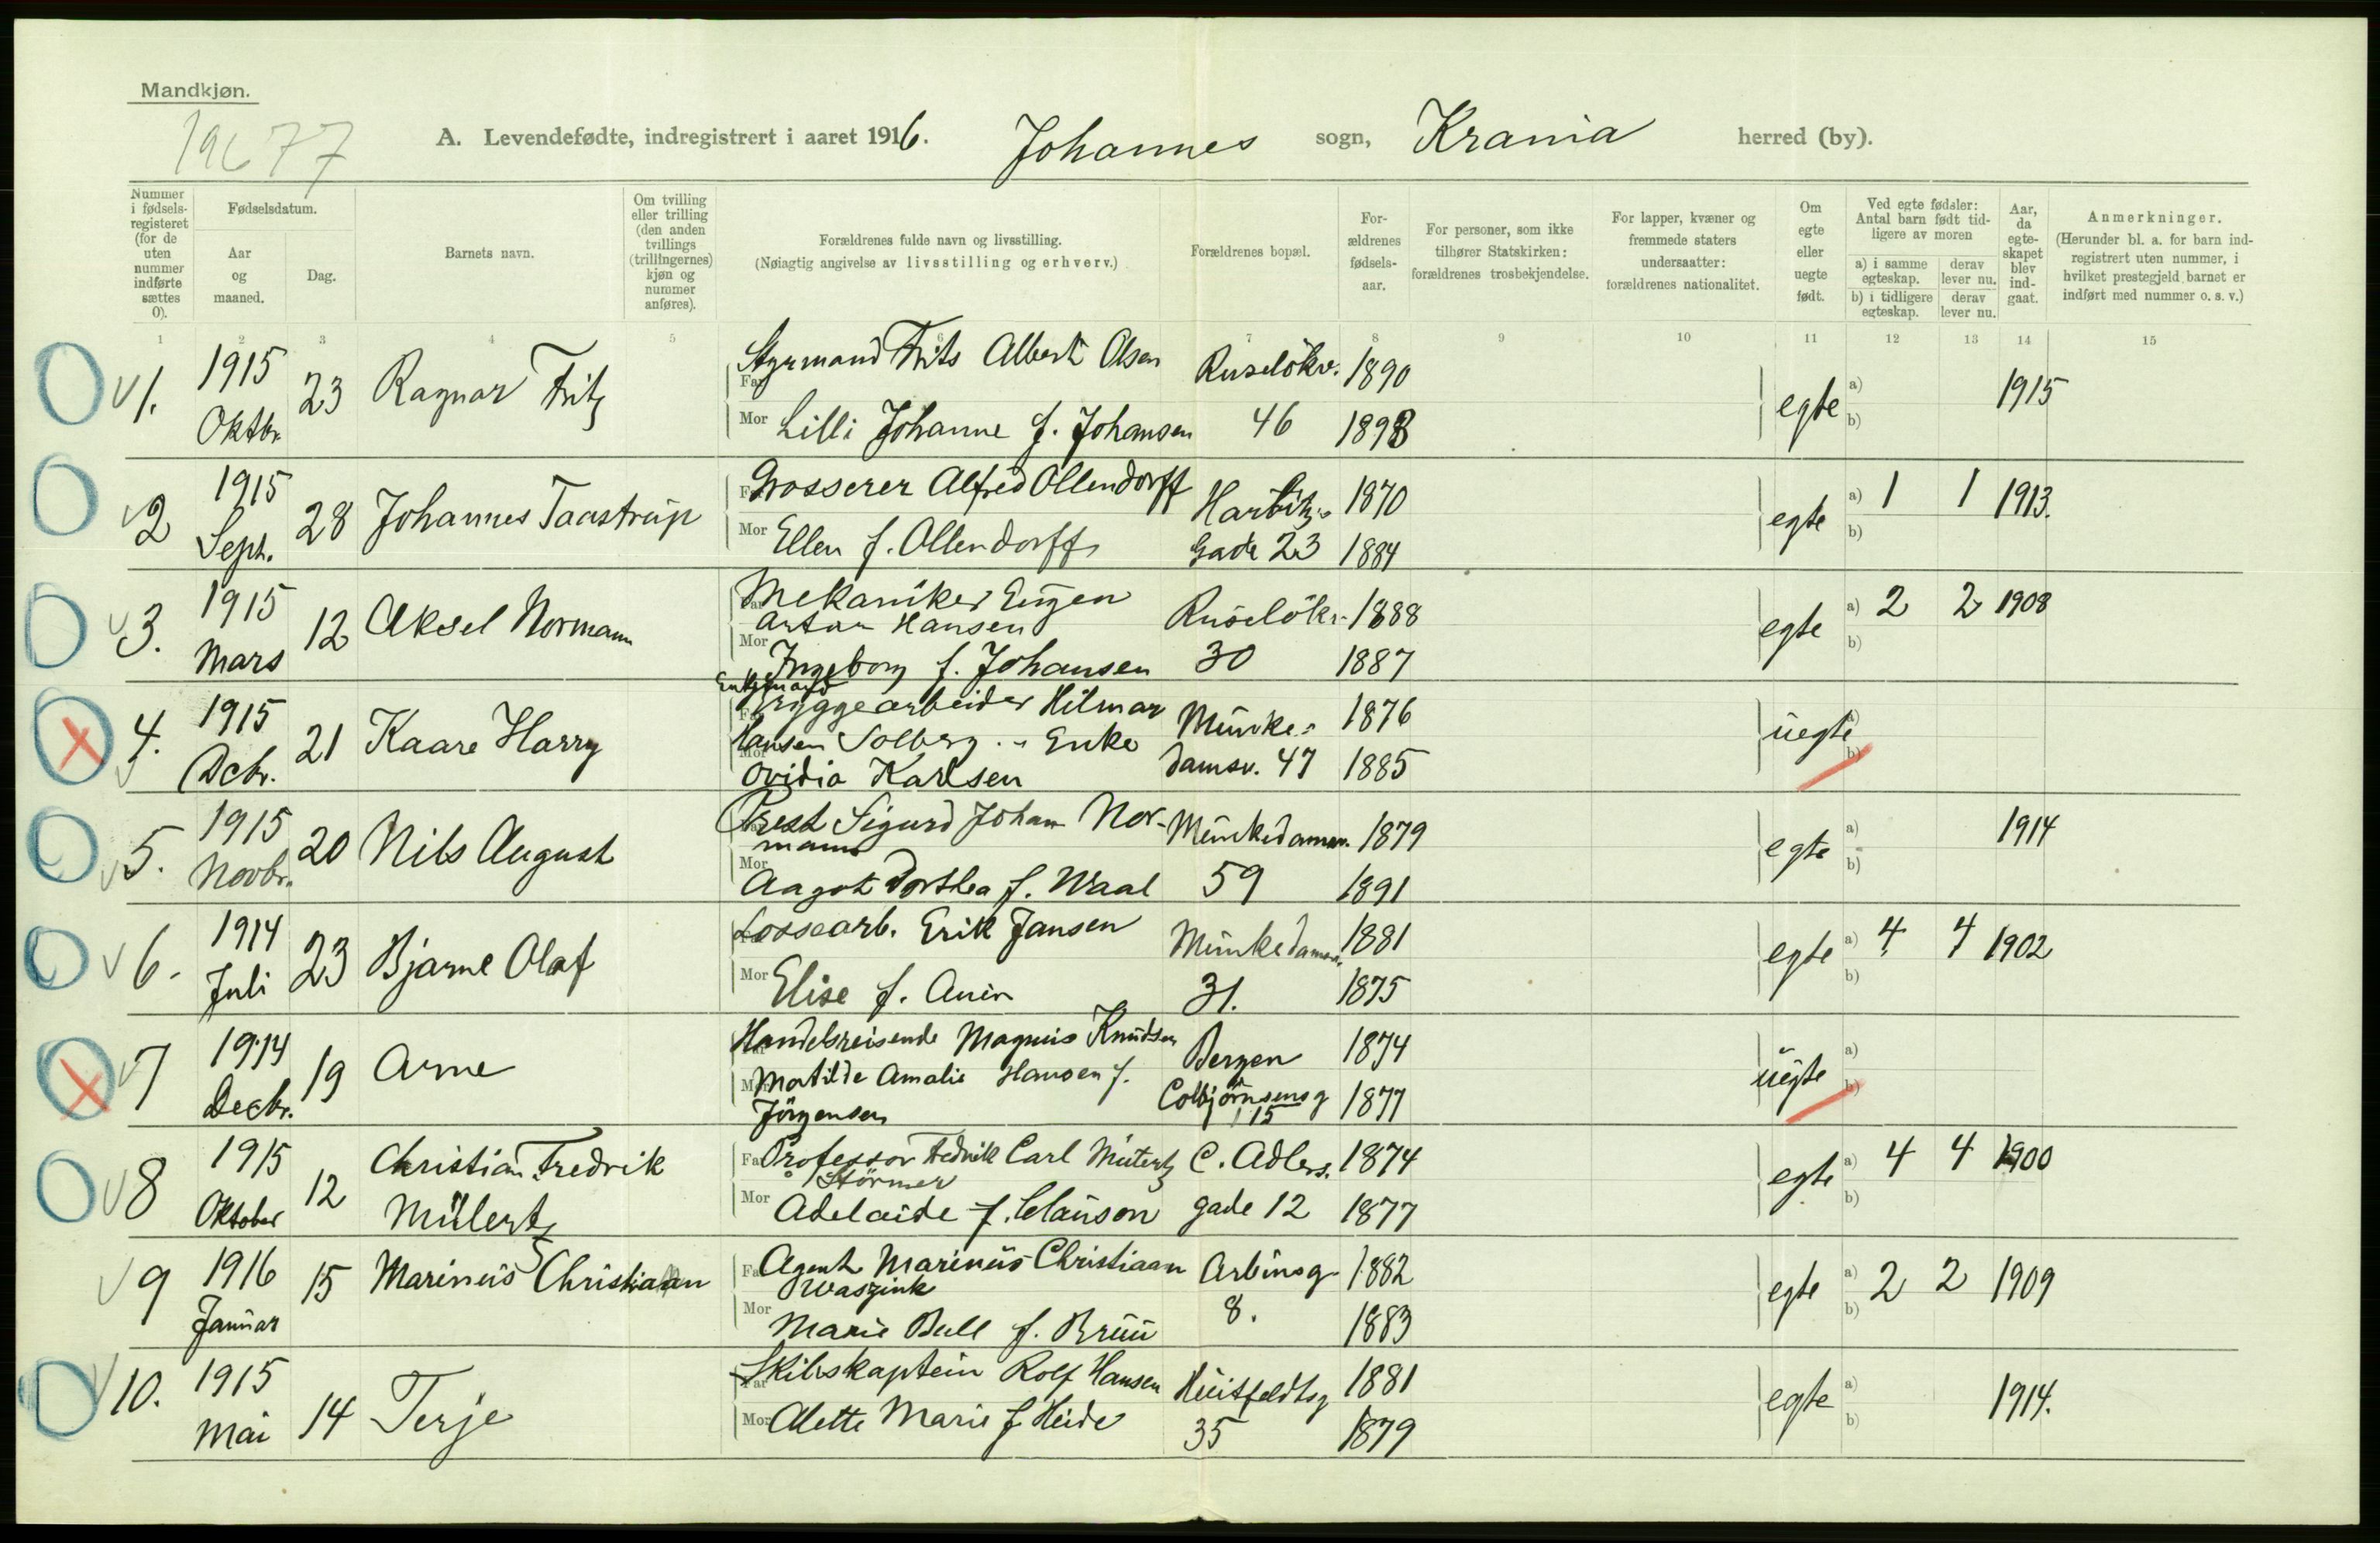 Mandkjøn.
19677
A. Levendefødte, indregistrert i aaret 1916. Johannes sogn, Krania herred (by).
Nummer i fødsels-registeret (for de uten nummer indførte sættes 0).
Fødselsdatum.
Aar og maaned.
Dag.
Barnets navn.
Om tvilling eller trilling (den anden tvillings (trillingernes) kjøn og nummer anføres).
Forældrenes fulde navn og livsstilling.
(Nøiagtig angivelse av livsstilling og erhverv.)
Forældrenes bopæl.
For-ældrenes fødsels-aar.
For personer, som ikke tilhører Statskirken: forældrenes trosbekjendelse.
For lapper, kvæner og fremmede staters undersaatter: forældrenes nationalitet.
Om egte eller uegte født.
Ved egte fødsler: Antal barn født tid-ligere av moren
a) i samme egteskap. derav lever nu.
b) i tidligere egteskap. derav lever nu.
Aar, da egte-skapet blev ind-gaat.
Anmerkninger.
(Herunder bl. a. for barn ind-registrert uten nummer, i hvilket prestegjeld barnet er indført med nummer o. s. v.)
1 2 3 4 5 6 7 8 9 10 11 12 13 14 15
1. 1915 Oktbr. 23 Ragnar Fritz
Far Styrmand Frits Albert Olsen Ruselökv. 1890
Mor Lilli Johanne f. Johansen 46 1898
egte a) b) 1915
2 1915 Sept. 28 Johannes Taastrup
Far Grosserer Alfred Ollendorff Harbitz- 1870
Mor Ellen f. Ollendorff Gade 23 1884
egte a) 1 1 b) 1913.
3. 1915 Mars 12 Aksel Normann
Far Mekaniker Eugen
Anton Hansen Ruselökv. 1888
Mor Ingeborg f. Johansen 30 1887
egte a) 2 2 b) 1908
4. 1915 Dcbr. 21 Kaare Harry
Enkemand
Far Bryggearbeider Hilmar Munke- 1876
Hansen Solberg. - Enke
Mor Ovidia Karlsen damsv. 47 1885
uegte a) b)
5. 1915 Novbr. 20 Nils August
Far Prest Sigurd Johan Nor-
mann Munkedamsv. 1879
Mor Aagot Dorthea f. Waal 59 1891
egte a) b) 1914
6. 1914 Juli 23 Bjarne Olaf
Far Lossearb. Erik Jansen Munkedamsv. 1881
Mor Elise f. 31. 1875
egte a) 4 4 b) 1902
7 1914 Decbr. 19 Arne
Far Handelsreisende Magnus Knudsen Bergen 1874
Mor Matilde Amalie Hansen f.
Jörgensen Colbjörnsensg 15 1877
uegte a) b)
8 1915 Oktober 12 Christian Fredrik
Mülertz
Far Professor Fredrik Carl Mülertz
Störmer C. Adlers. 1874
Mor Adelaide f. Clauson gade 12 1877
egte a) 4 4 b) 1900
9 1916 Januar 15 Marinus Christiaan
Far Agent Marinus Christiaan
Waszink Arbinsg. 1882
Mor Marie Bull f. Bruu 8. 1883
egte a) 2 2 b) 1909
10. 1915 Mai 14 Terje
Far Skibskaptein Rolf Hansen Huitfeldtsg 1881
Mor Alette Marie f Heide 35 1879
egte a) b) 1914.